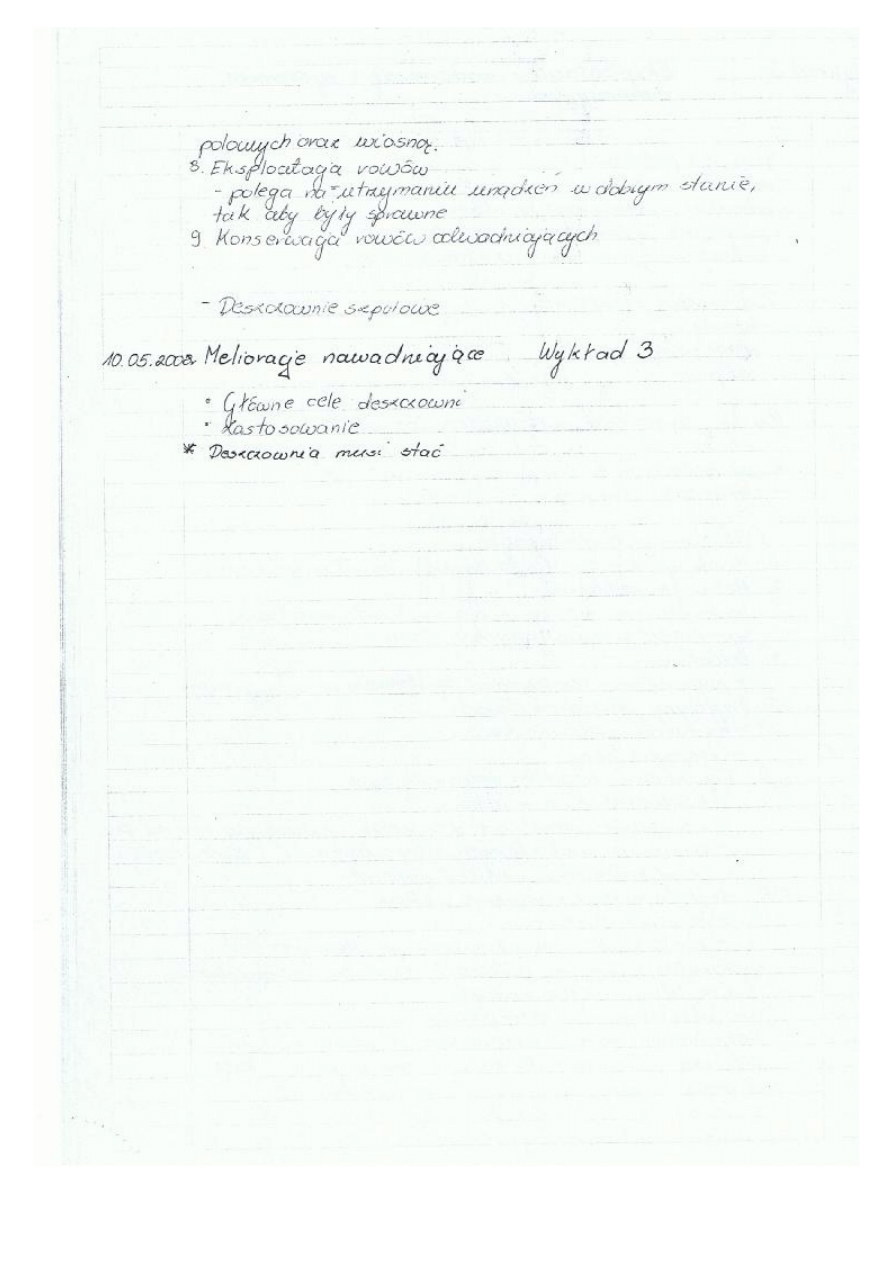 polowych oraz wiosną.
8. Eksploatacja rowów
- polega na utrzymaniu urządzeń w dobrym stanie,
tak aby były sprawne
9 Konserwacja rowów odwadniających
- Deszczownie szpulowe
10.05.2008 Melioracje nawadniające Wykład 3
• Główne cele deszczowni
• Zastosowanie
* Deszczownia musi stać